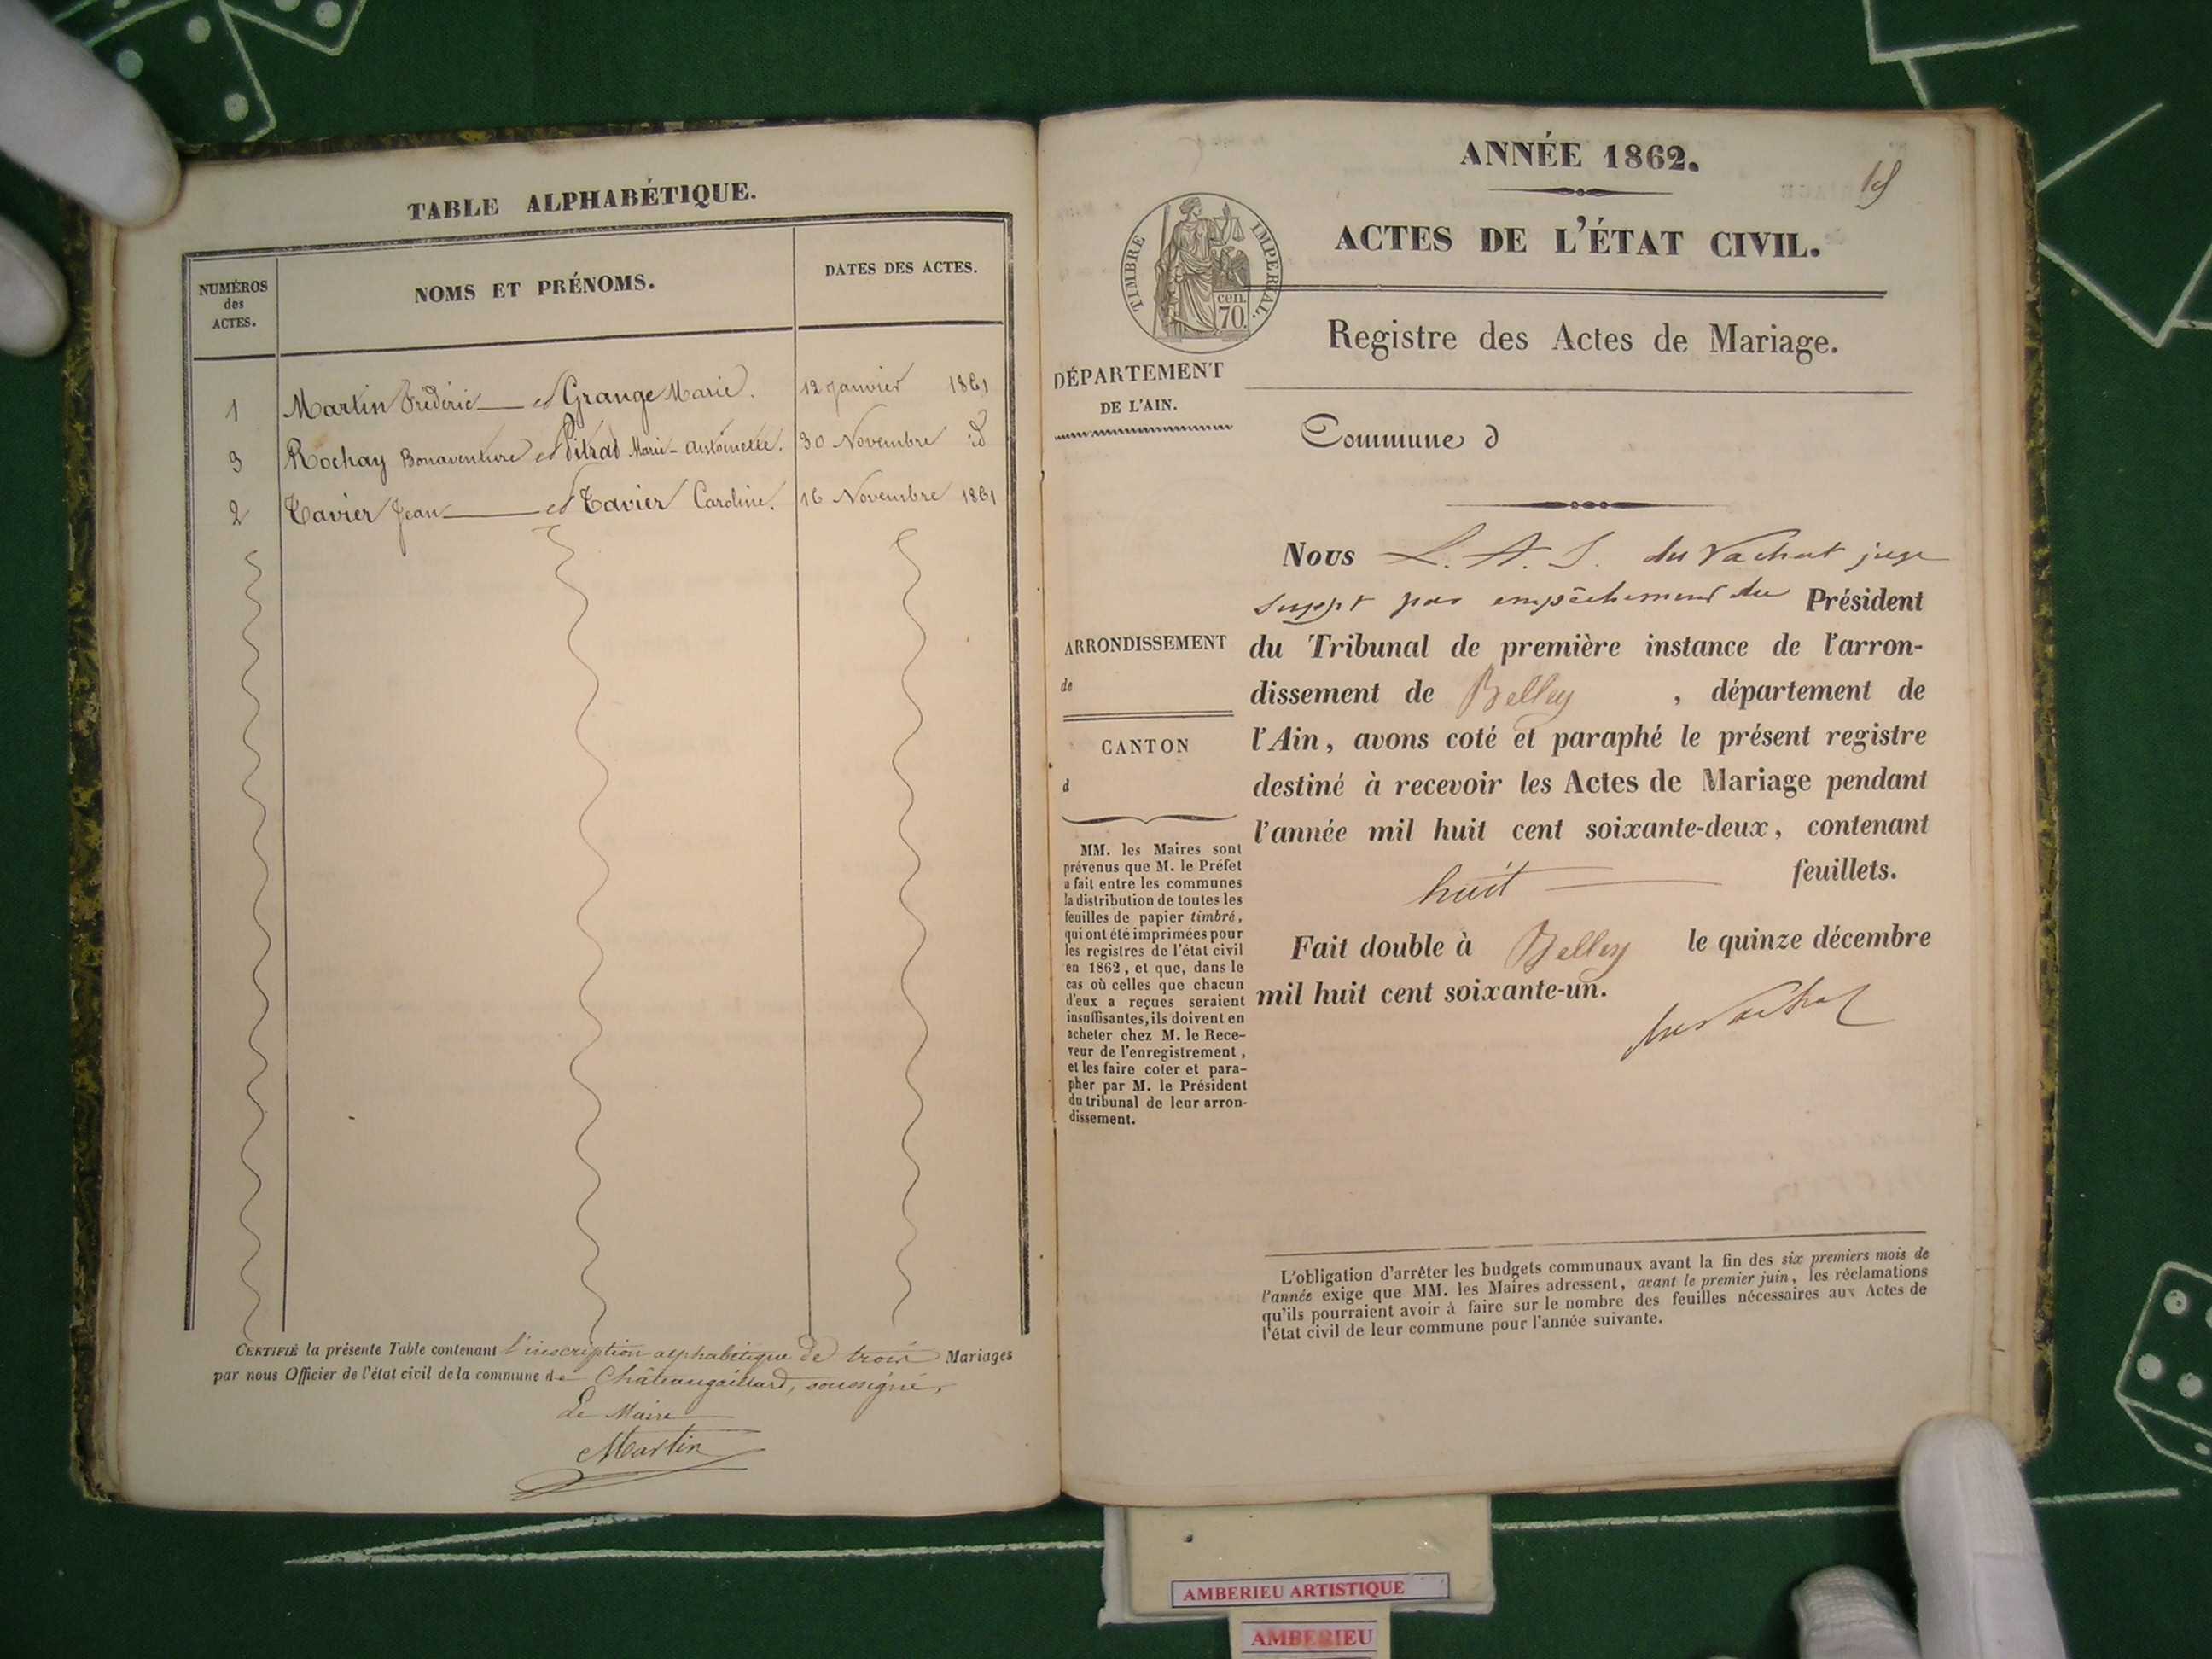 TABLE ALPHABÉTIQUE.
NUMÉROS
des
ACTES.
NOMS ET PRÉNOMS.
DATES DES ACTES.
1 Martin Frédéric et Grange Marie. 12 Janvier 1861
3 Rochay Bonaventure et Pitrat Marie-Antoinette. 30 Novembre id
2 Tavier Jean et Tavier Caroline. 16 Novembre 1861
CERTIFIÉ la présente Table contenant l'inscription alphabétique de trois Mariages
par nous Officier de l'état civil de la commune de Châteaugaillard, soussigné,
Le Maire
Martin
ANNÉE 1862.
ACTES DE L'ÉTAT CIVIL.
TIMBRE IMPERIAL.
cen.
70.
Registre des Actes de Mariage.
DÉPARTEMENT
DE L'AIN.
Commune d
Nous L. A. S. du Vachat juge
suppt par empêchement du Président
du Tribunal de première instance de l'arron-
dissement de Belley , département de
l'Ain, avons coté et paraphé le présent registre
destiné à recevoir les Actes de Mariage pendant
l'année mil huit cent soixante-deux, contenant
huit feuillets.
Fait double à Belley le quinze décembre
mil huit cent soixante-un.
du Vachat
ARRONDISSEMENT
de
CANTON
d
MM. les Maires sont
prévenus que M. le Préfet
a fait entre les communes
la distribution de toutes les
feuilles de papier timbré,
qui ont été imprimées pour
les registres de l'état civil
en 1862, et que, dans le
cas où celles que chacun
d'eux a reçues seraient
insuffisantes, ils doivent en
acheter chez M. le Rece-
veur de l'enregistrement,
et les faire coter et para-
pher par M. le Président
du tribunal de leur arron-
dissement.
L'obligation d'arrêter les budgets communaux avant la fin des six premiers mois de
l'année exige que MM. les Maires adressent, avant le premier juin, les réclamations
qu'ils pourraient avoir à faire sur le nombre des feuilles nécessaires aux Actes de
l'état civil de leur commune pour l'année suivante.
AMBERIEU ARTISTIQUE
AMBERIEU